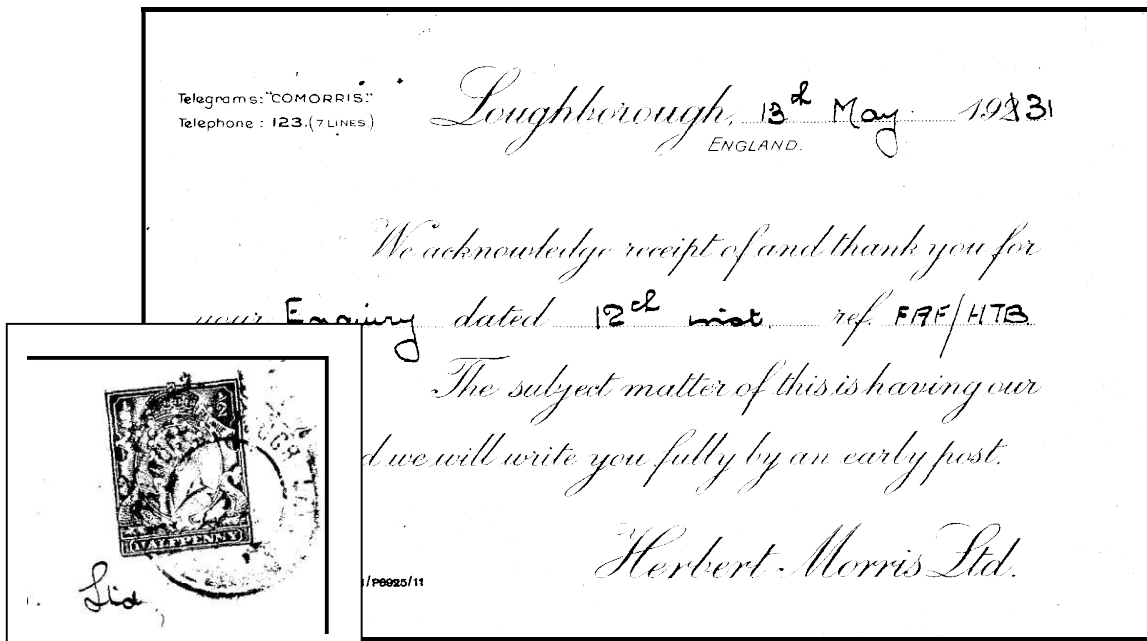 Telegrams: "COMORRIS"
Telephone: 123. (7 LINES)
Loughborough, 13th May 1931
ENGLAND.
We acknowledge receipt of and thank you for
your Enquiry dated 12th inst. ref. FRF/HTB
The subject matter of this is having our
we will write you fully by an early post.
Herbert Morris Ltd.
/P6925/11
½ ½
HALFPENNY
Ltd,